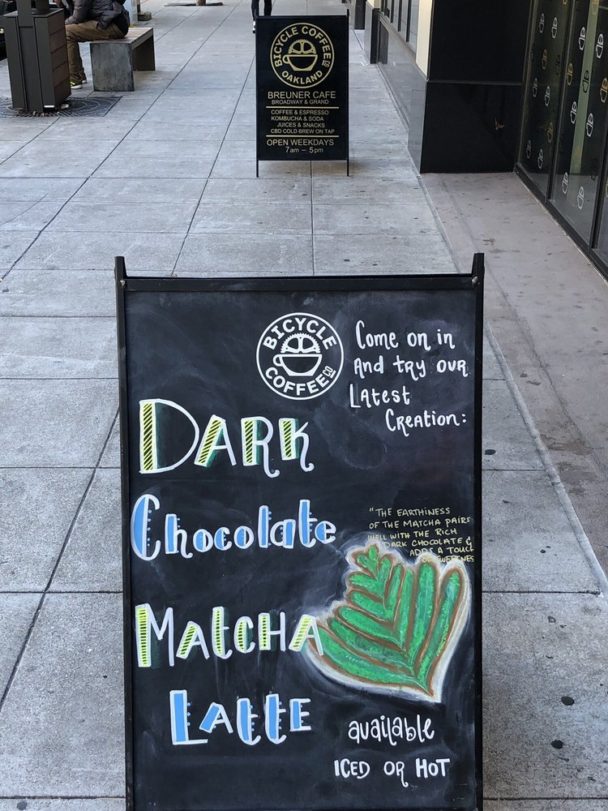 BICYCLE COFFEE CO
OAKLAND
BREUNER CAFE
BROADWAY & GRAND
COFFEE & ESPRESSO
KOMBUCHA & SODA
JUICES & SNACKS
CBD COLD-BREW ON TAP
OPEN WEEKDAYS
7am – 5pm
BICYCLE
COFFEE CO
Come on in
And try our
Latest
Creation:
DARK
Chocolate
"THE EARTHINESS
OF THE MATCHA PAIRS
WELL WITH THE RICH
DARK CHOCOLATE &
ADDS A TOUCH
MATCHA
LATTE
available
ICED OR HOT